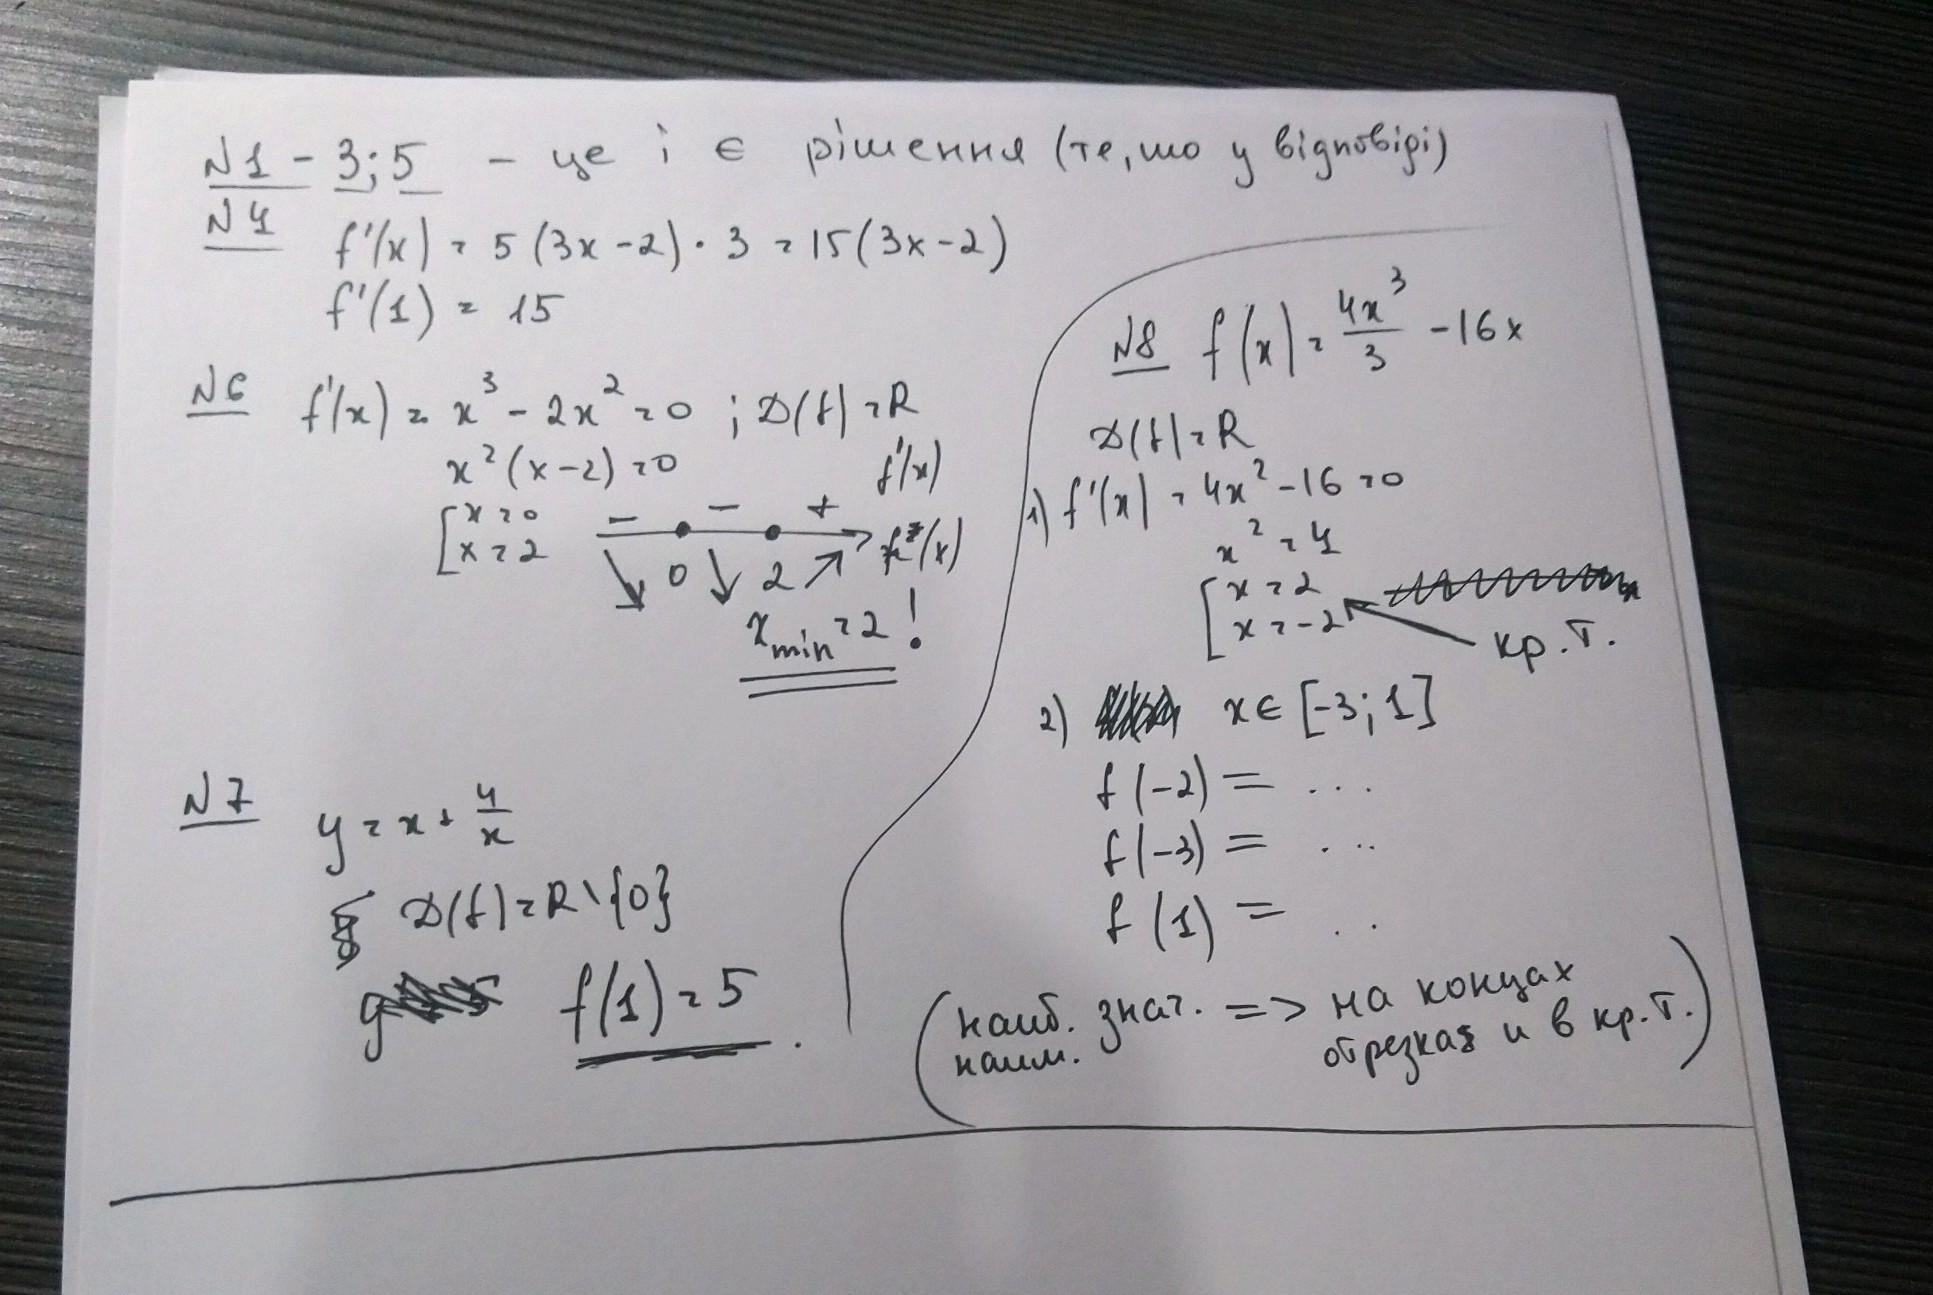 №1 - 3; 5 - це і є рішення (те, шо у відповіді)
№4
f'(x) = 5 (3x - 2) · 3 = 15 (3x - 2)
f'(1) = 15
№6 f'(x) = x³ - 2x² = 0 ; D(f) = R
x² (x - 2) = 0
[ x = 0
x = 2
- - + f'(x)
0 2 f(x)
x min = 2 !
№7 y = x + 4/x
D(f) = R \ {0}
f(1) = 5 .
№8 f(x) = 4x³/3 - 16x
D(f) = R
1) f'(x) = 4x² - 16 = 0
x² = 4
[ x = 2
x = -2
кр. т.
2) x ∈ [-3; 1]
f(-2) = ...
f(-3) = ...
f(1) = ..
(наиб. знач. => на концах
наим. отрезка и в кр. т.)